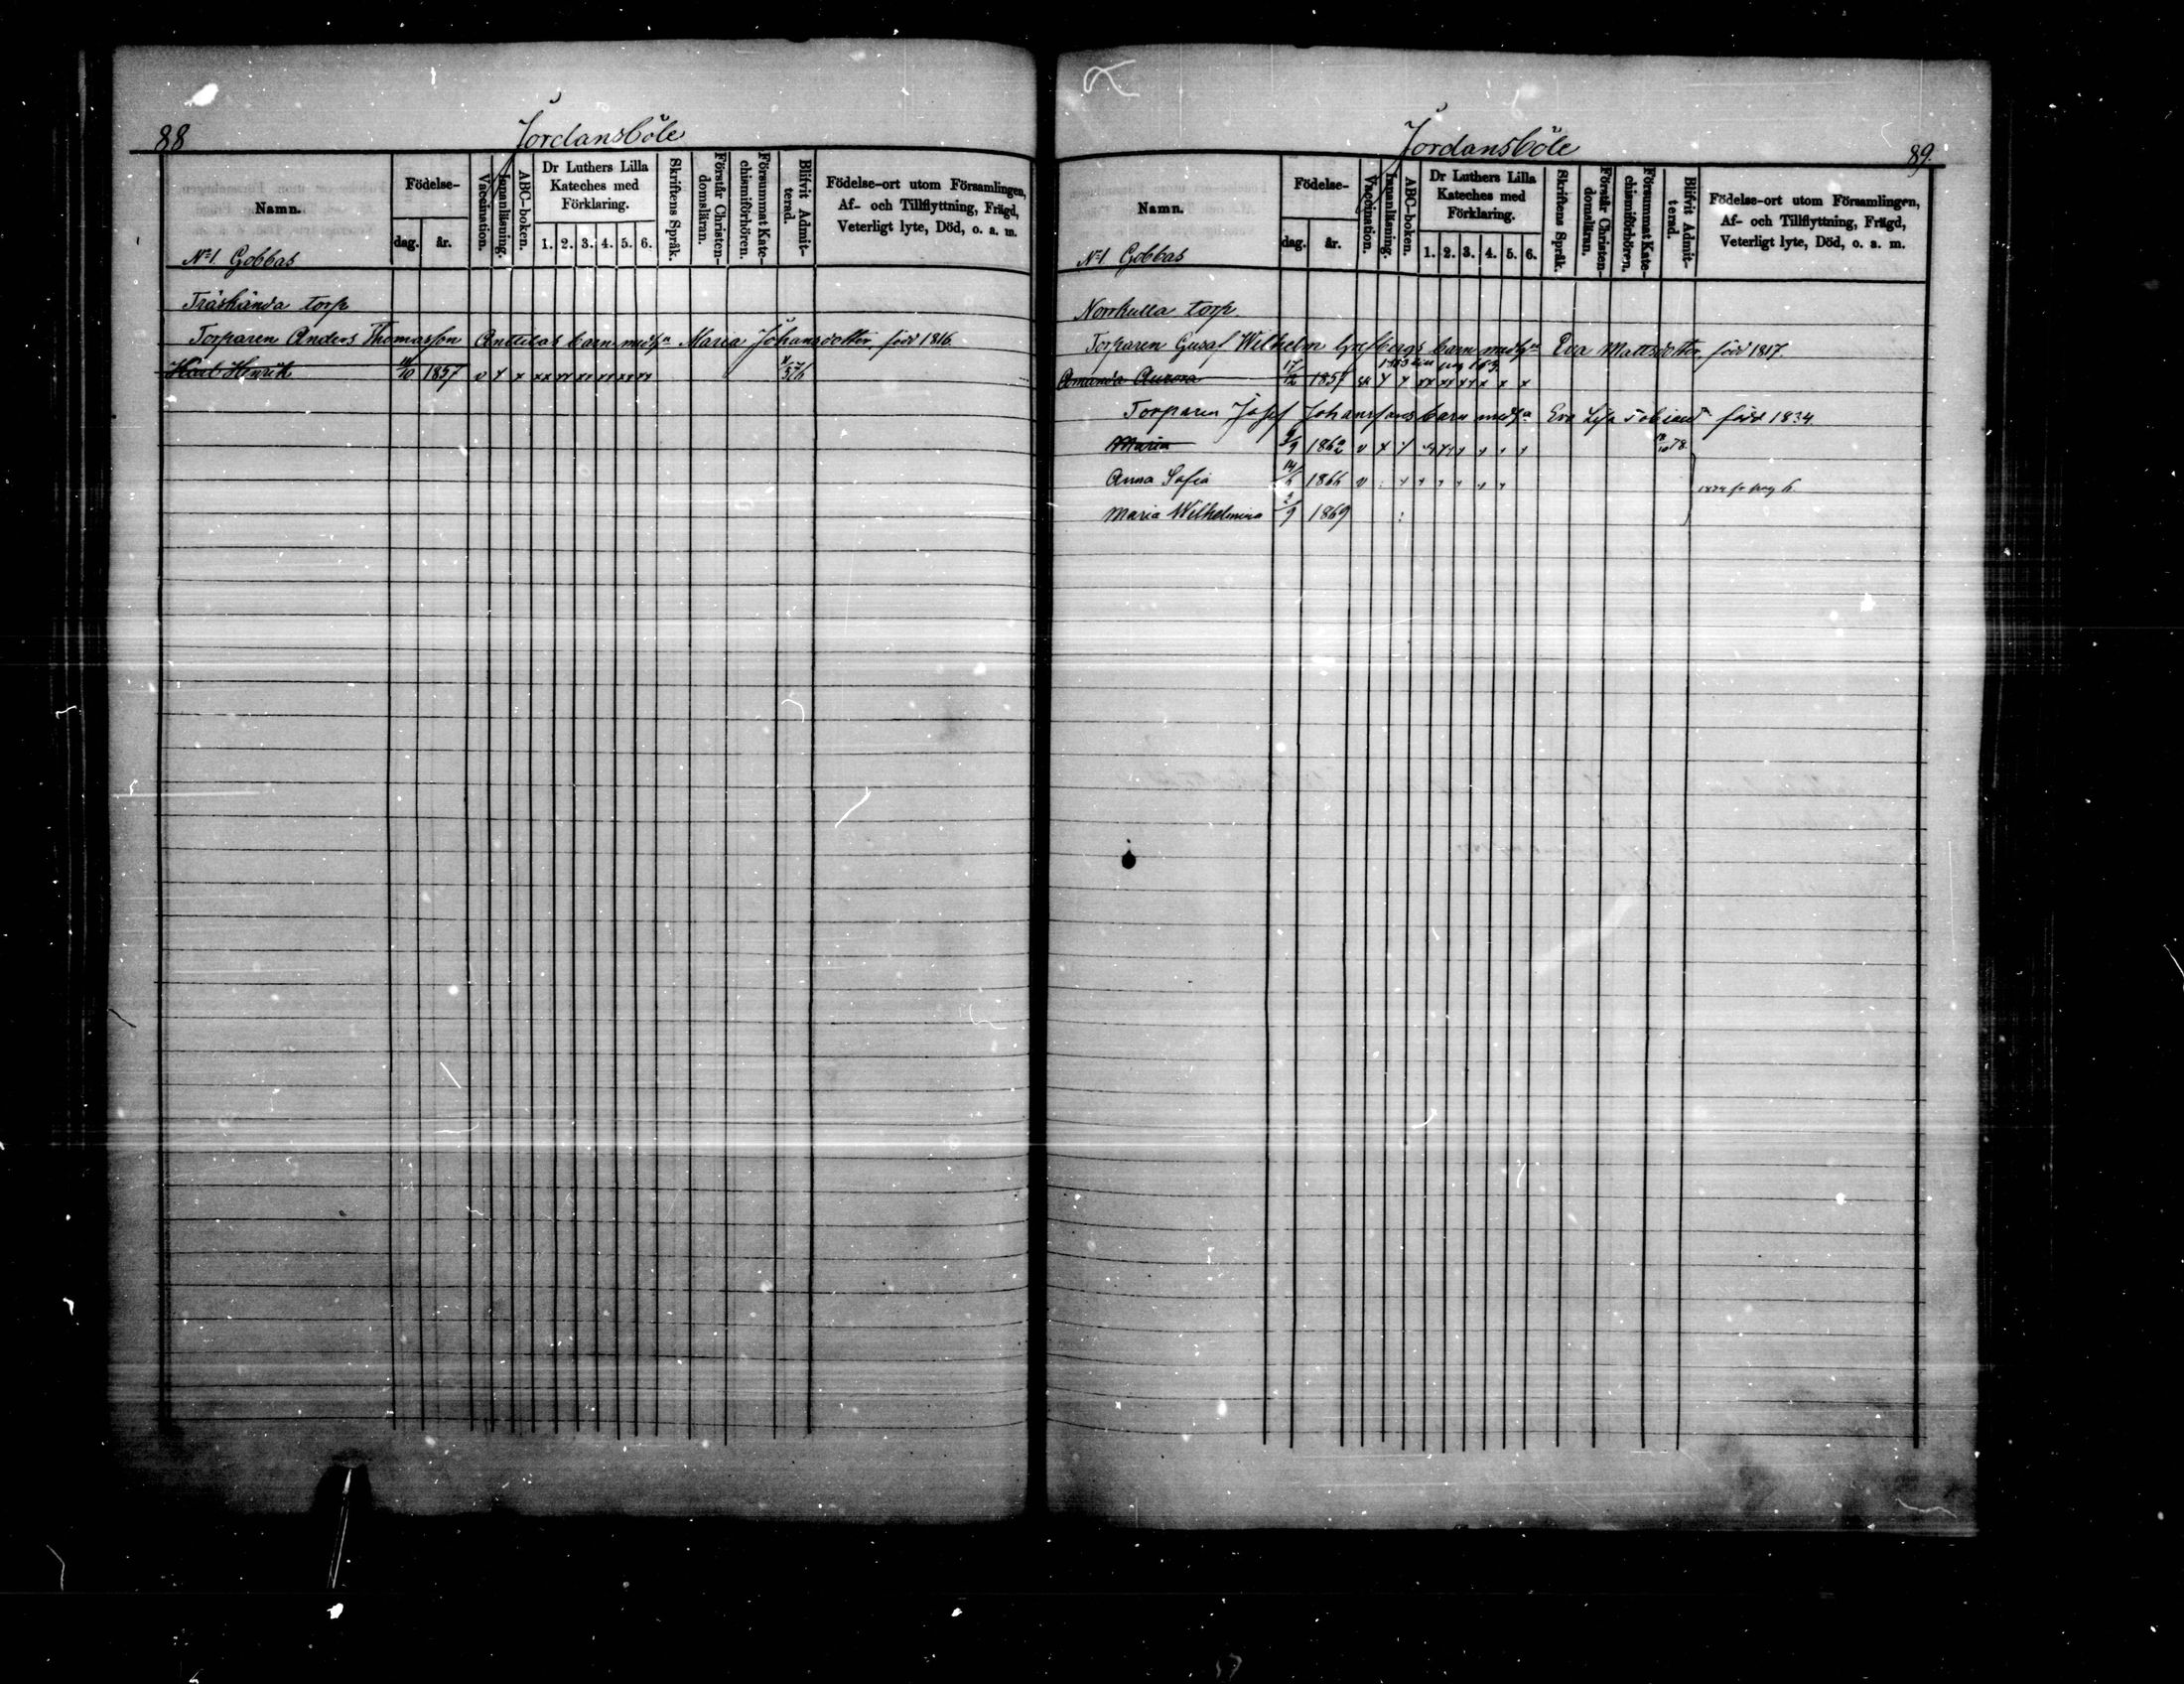 88
Jordansböle
Namn.
Födelse-
dag.
år.
Vaccination.
Innanläsning.
ABC-boken.
Dr Luthers Lilla
Kateches med
Förklaring.
1. 2. 3. 4. 5. 6.
Skriftens Språk.
Förstår Christen-
domsläran.
Försummat Kate-
chismiförhören.
Blifvit Admit-
terad.
Födelse-ort utom Församlingen,
Af- och Tillflyttning, Frägd,
Veterligt lyte, Död, o. a. m.
No 1 Gobbas
Träskända torp
Torparen Anders Thomasson Anttilas barn med hu Maria Johansdotter född 1816
Karl Henrik 10 1857 v x x xx xx xx xx xx xx
Jordansböle
89.
Namn.
Födelse-
dag.
år.
Vaccination.
Innanläsning.
ABC-boken.
Dr Luthers Lilla
Kateches med
Förklaring.
1. 2. 3. 4. 5. 6.
Skriftens Språk.
Förstår Christen-
domsläran.
Försummat Kate-
chismiförhören.
Blifvit Admit-
terad.
Födelse-ort utom Församlingen,
Af- och Tillflyttning, Frägd,
Veterligt lyte, Död, o. a. m.
No 1 Gobbas
Norrkulla torp
Torparen Gustaf Wilhelm barn med hu Eva Mattsdotter född 1817.
Amanda Aurora 17/12 1857 x x xx xx xx x x x
Torparen Josef Johanssons barn med hu Eva Lisa född 1834
Maria 3/9 1862 v x
Anna Sofia 1866 v
Maria Wilhelmina 2/9 1869